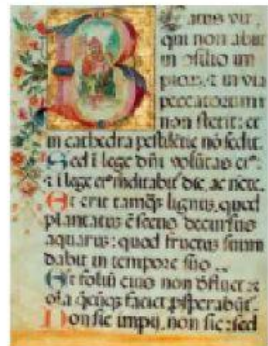 Beatus vir,
qui non abiit
in ꝯsilio im
pioꝝ, ⁊ in via
peccatorum
non stetit: et
in cathedra pestilētie nō sedit.
Sed ī lege dn̄i volūtas eiꝰ:
⁊ ī lege eiꝰ meditabit̃ die, ac nocte.
Et erit tamqȝ lignum, quod
plantatūꝫ ē secus decursus
aquarum: quod fructuꝫ suum
dabit in tempore suo
Et foliū eius non
faciet
Non sic impij, non sic: sed